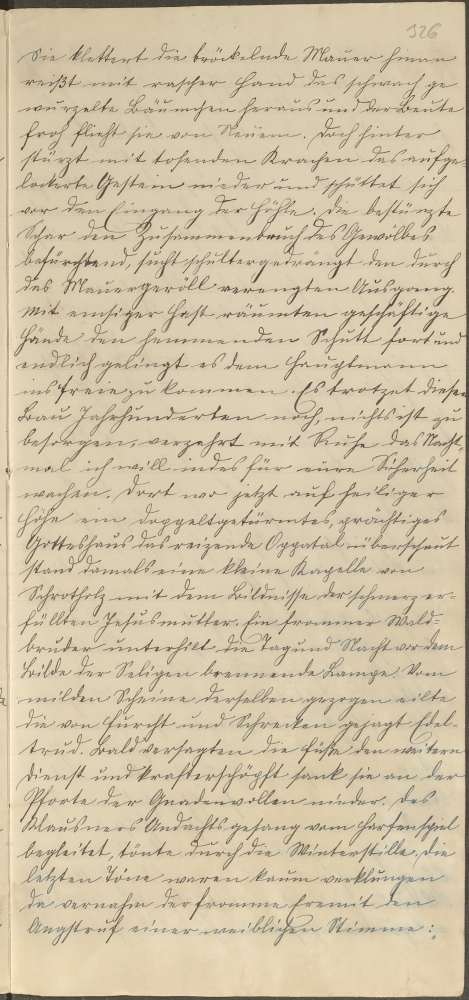 326
Sie klettert die bröckelnde Mauer hinan
reißt mit rascher Hand das schwach ge
wurzelte Bäumchen heraus und der Beute
froh flieht sie von Neuem. Doch hinter
stürzt mit tosenden Krachen das aufge-
lockerte Gestein nieder und schüttet sich
vor den Eingang der Höhle. Die bestürzte
Schar den Zusammenbruch des Gewölbes
befürchtend, sucht schultergedrängt den durch
das Mauergeröll verengten Ausgang.
Mit emsiger Hast räumten geschäftige
Hände den hemmenden Schutt fort und
endlich gelingt es dem Hauptmann
ins Freie zu kommen. Es trotzet dieser
Bau Jahrhunderten noch, nichts ist zu
besorgen, verzehrt mit Ruhe das Nacht-
mal ich will indes für eure Sicherheit
wachen. Dort wo jetzt auf heiliger
Höhe ein doppeltgetürmtes, prächtiges
Gotteshaus das reizende Oppatal überschaut
stand damals eine kleine Kapelle von
Schrotholz mit dem Bildnisse der schmerzer-
füllten Jesusmutter. Ein frommer Wald-
bruder unterhilt die Tag und Nacht vor dem
Bilde der Seligen brennende Lampe. Vom
milden Scheine derselben gezogen eilte
die von Furcht und Schrecken gejagt Edel-
trud. Bald versagten die Füße den weitern
Dienst und kraftterschöpft sank sie an der
Pforte der Gnadenvollen nieder. Des
Klausners Andachtsgesang vom Harfenspiel
begleitet, tönte durch die Winterstille, die
letzten Töne waren kaum verklungen
da vernahm der fromme Eremit den
Angstruf einer weiblichen Stimme: